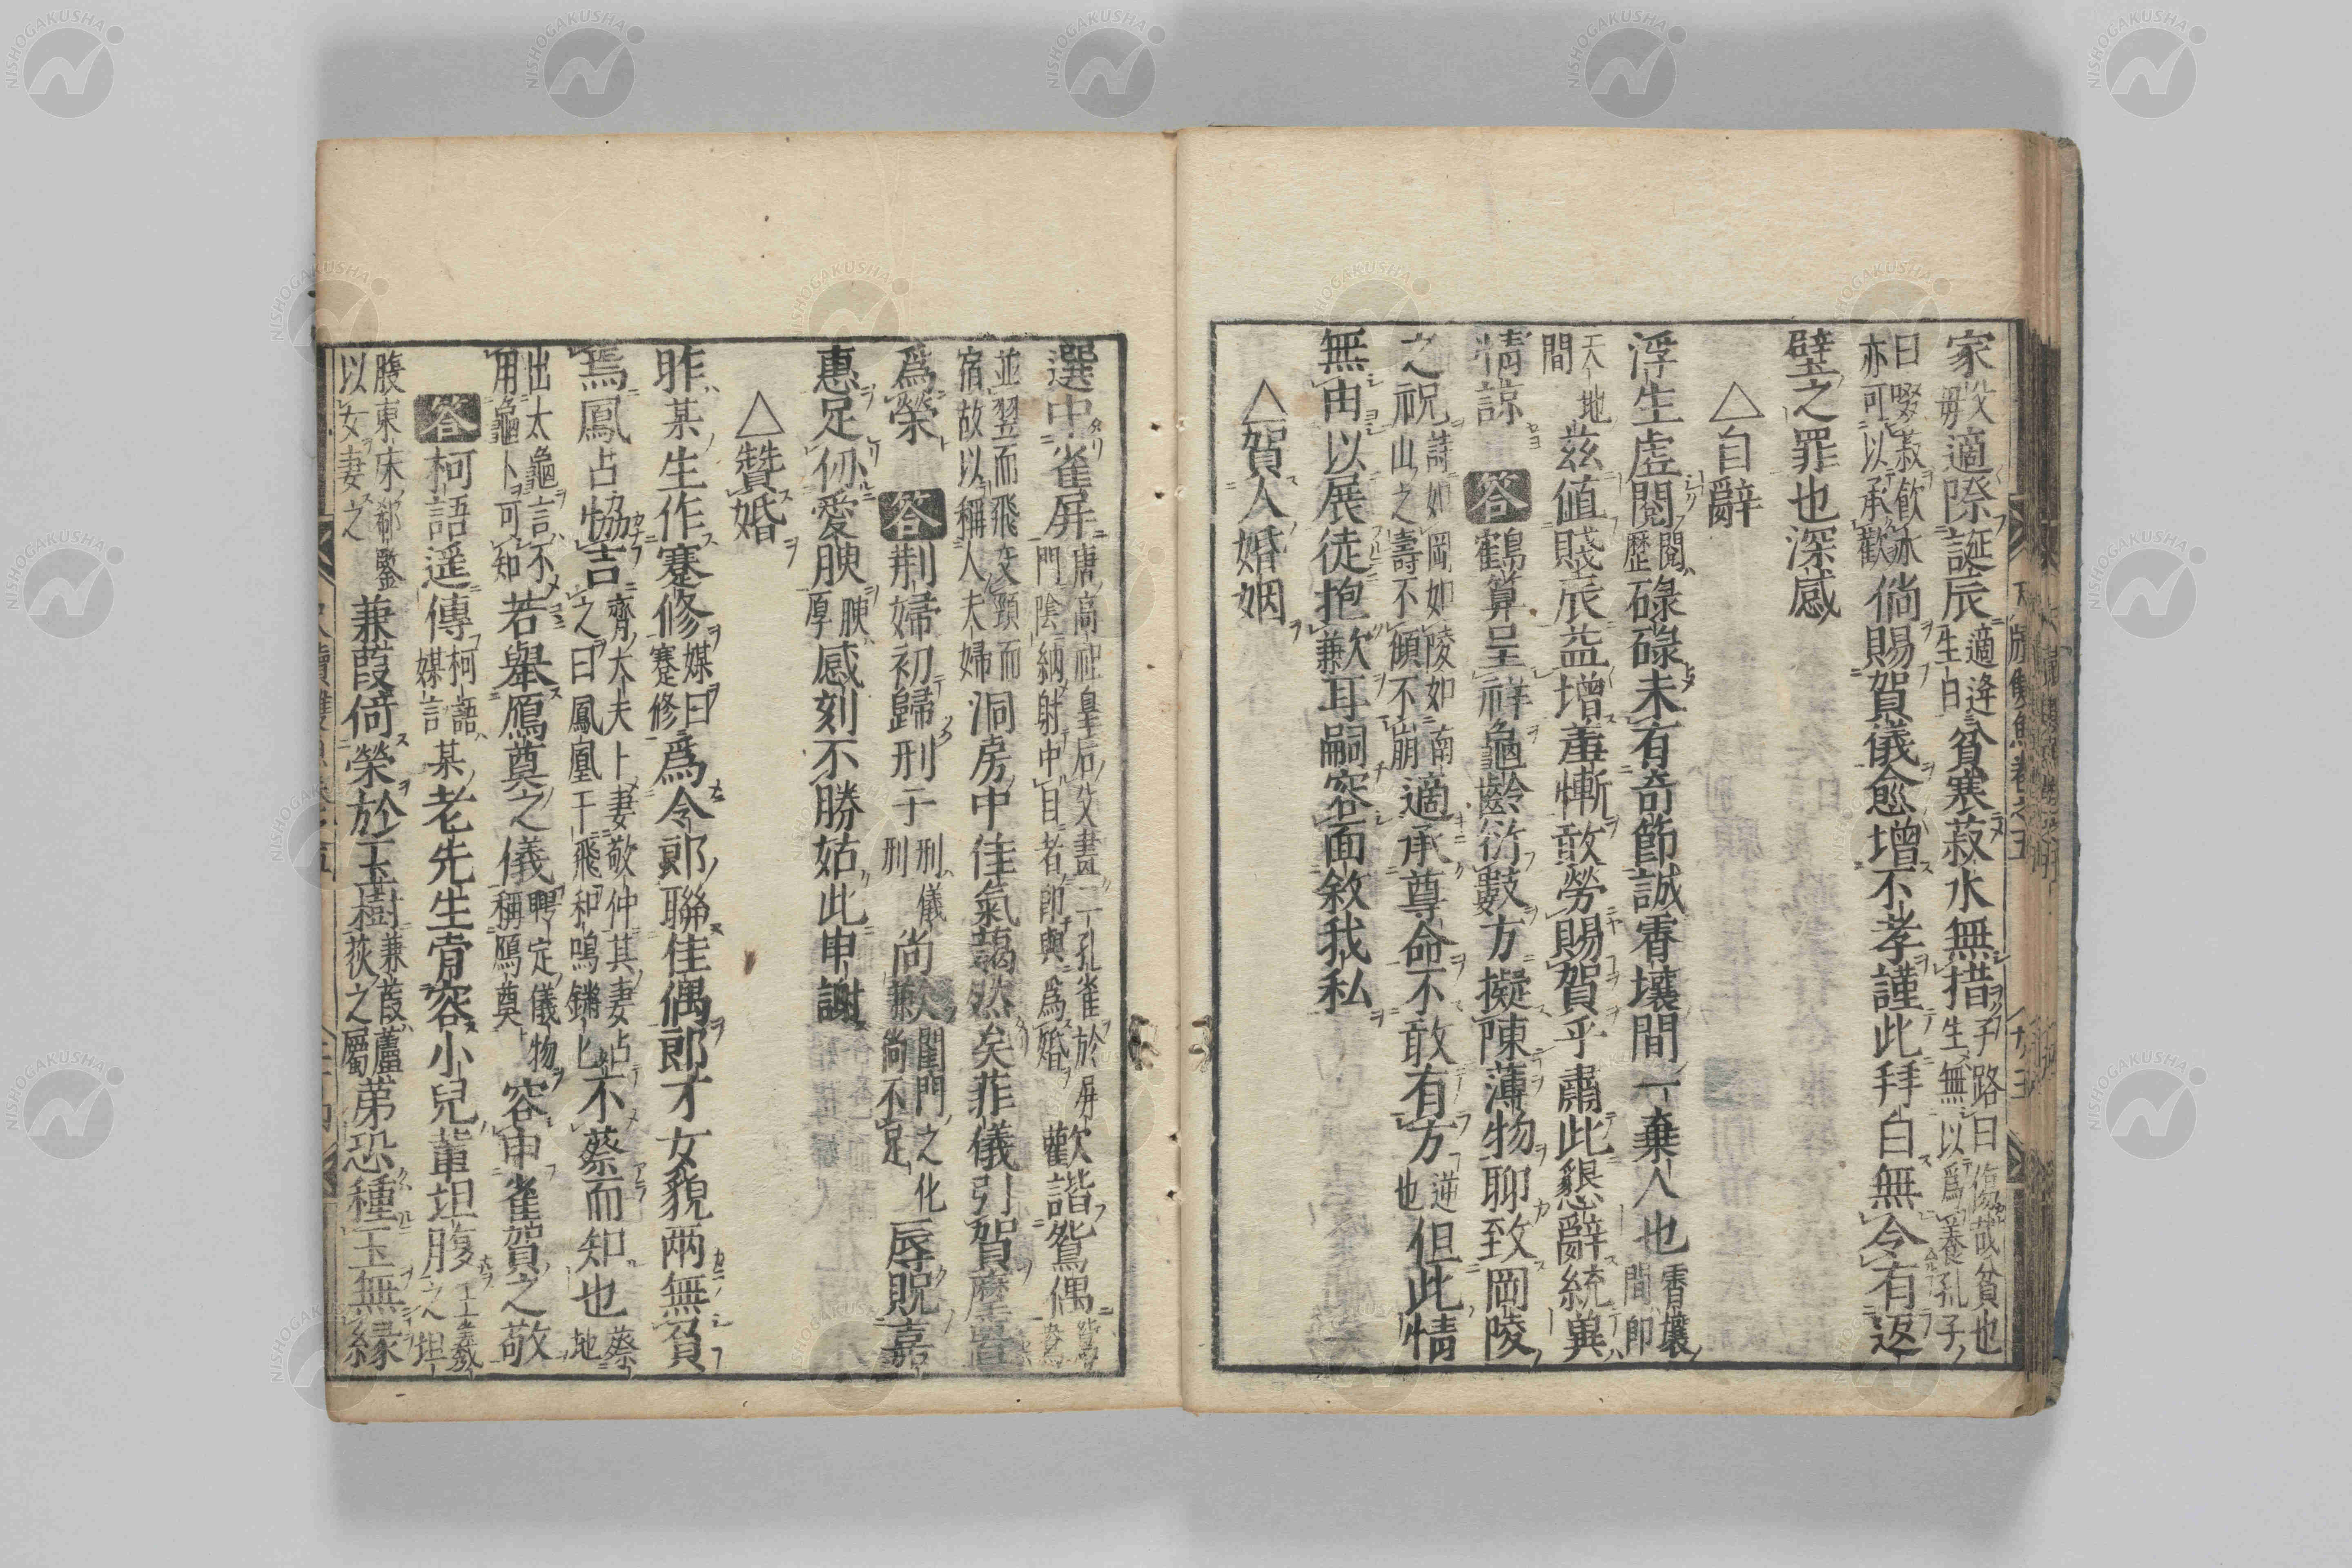 家父毋適際誕辰適逄生日貧寒菽水無措子路曰傷哉貧也生無以爲養孔子
曰啜菽飲水亦可以承歡倘賜賀儀愈增不孝謹此拜白無令有返
璧之罪也深感
△自辭
浮生虛閱閱歷碌碌未有奇節誠霄壤間一棄人也霄壤間卽
天地間茲值賤辰益增羞慚敢勞賜賀乎肅此懇辭統兾
情諒 答鶴算呈祥龜齡衍數方擬陳薄物聊致岡陵
之祝詩如岡如陵如南山之壽不傾不崩適承尊命不敢有方逆也但此情
無由以展徒抱歉耳嗣容面敘我私
△賀人婚姻
選中雀屏唐高祖皇后父畫二孔雀於屏門陰納射中目者卽與爲婚歡諧鴛偶鴛鴦
並翌而飛交頸而宿故以稱人夫婦洞房中佳氣藹然矣菲儀引賀麾置
爲榮 答荆婦初歸刑于刑儀尚歉閨門之化歉尚不足辱貺嘉
惠足仞愛腴腴厚感刻不勝姑此申謝
△贊婚
昨某生作蹇修媒曰蹇修爲令郎聯佳偶郎才女貌兩無負
焉鳳占協吉齊大夫卜妻敬仲其妻占之曰鳳凰于飛和鳴鏘鏘不蔡而知也蔡地
出太龜言不用龜卜可知若舉鴈奠之儀聘定儀物稱鴈奠容申雀賀之敬
答柯語遥傳柯語媒言某老先生肯容小兒輩坦腹王羲之坦
腹東床郗鑒以女妻之兼葭倚榮於玉樹兼葭蘆荻之屬弟恐種玉無緣